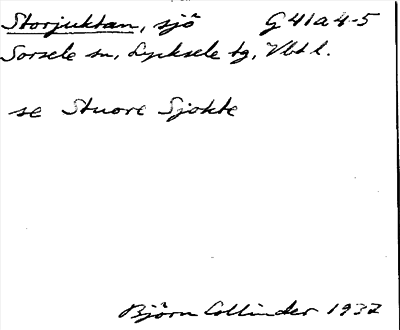 Storjuktan, sjö G 41a 4-5
Sorsele sn, Lycksele tg, Vbt l.
se Stuore Sjokte
Björn Collinder 1937